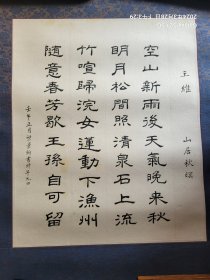 王維 山居秋暝
空山新雨後天氣晚来秋
明月松間照清泉石上流
竹喧歸浣女運動下漁州
随意春芳歇王孫自可留